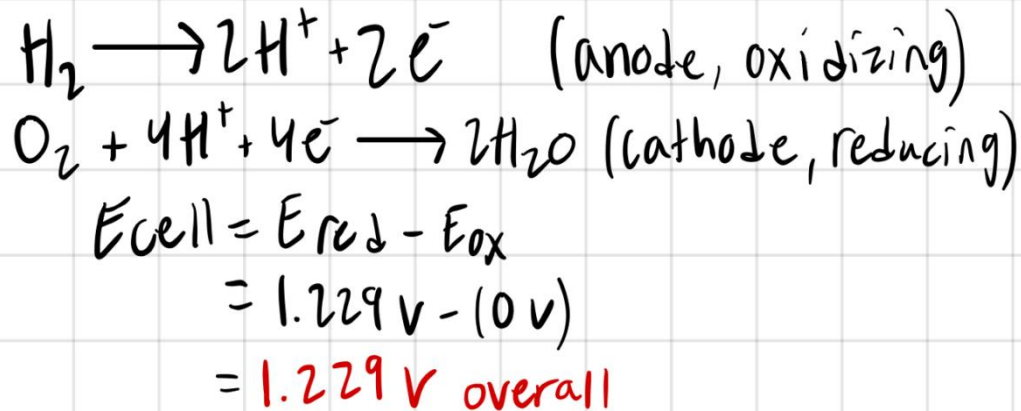 H₂ ⟶ 2H⁺ + 2e⁻ (anode, oxidizing)
O₂ + 4H⁺ + 4e⁻ ⟶ 2H₂O (cathode, reducing)
Ecell = Ered - Eox
= 1.229 V - (0 V)
= 1.229 V overall